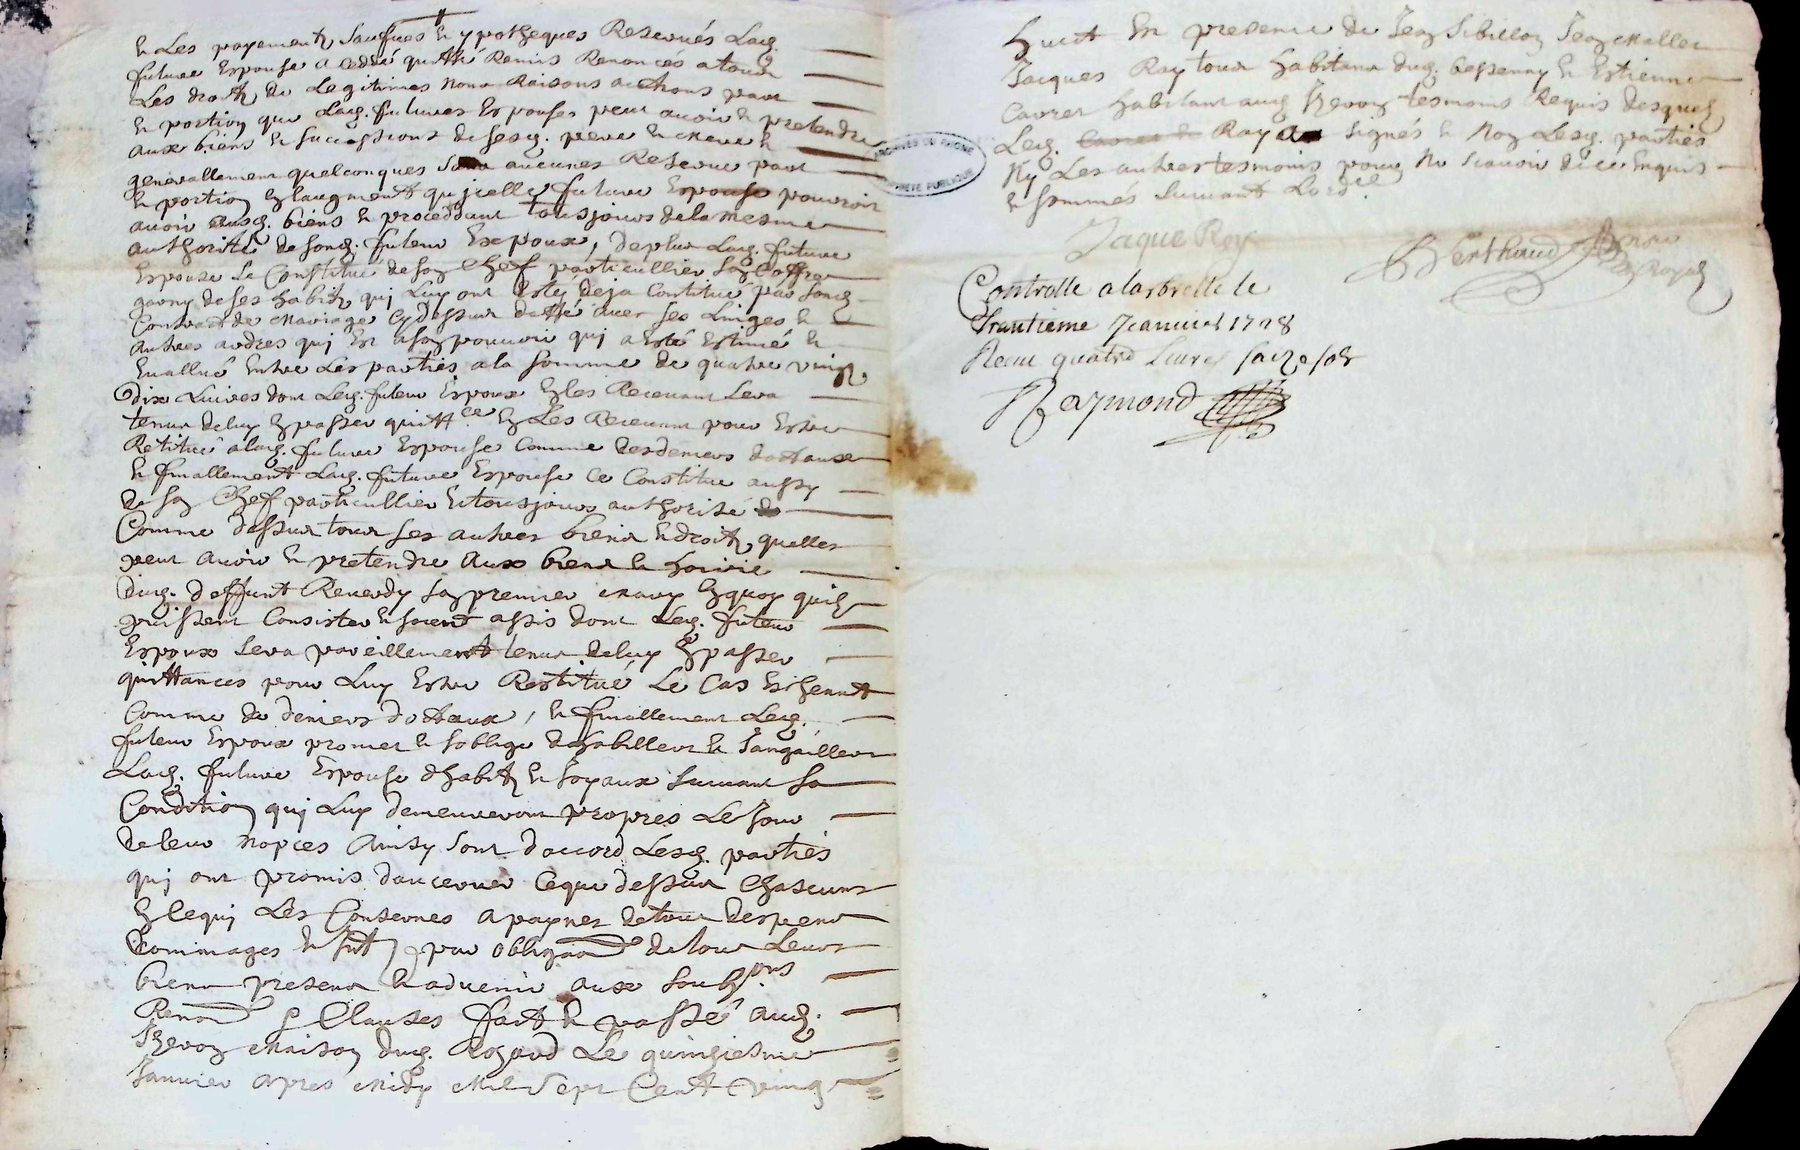 et Les payements Saufues et ypotheques Reservés Lad.
future Espouse a cedé quitté Remis Renoncés a tous
Les droits de Legitimes noms Raisons actions part
et portion que Lad. future Espouse peut avoir et pretendre
aux biens et successions de sesd. pere et mere et
generallement quelconques sans aucunes Reserve part
et portion et laugment qu'jcelle future Espouse pourroit
avoir ausd. biens et procedant tousjours de la mesme
authorité de sond. futeur Expoux, de plus Lad. future
Espouse se Constitue de son Chef particullier son Coffre
garny de ses habits qui Luy ont esté deja Constitué par sond
Contract de mariage cy dessus datté avec ses Linges et
autres ardres qui Est a son pouvoir qui a Esté Estimé et
Evallué Entre Les parties a la somme de quatre vingt
dix Livres dont Led. futeur Espoux En les Recevant sera
tenus deluy En passer quitt.ce En Les Recevant pour Estre
Retitué alad. future Espouse comme des deniers dottaux
et finallement Lad. future Espouse ce Constitue aussy
de son Chef particullier et tousjours authorisé
Comme dessus tous ses autres biens et droits quelles
peut avoir et pretendre Aux biens et hoirie
dud. deffunt Reverdy son premier mary En quoy quils
puissent Consister et soient assis dont Led. futeur
Espoux sera pareillement tenus deluy En passer
quittances pour Luy Estre Restitué Le Cas Escheant
comme de deniers dottaux, et finallement Led.
futeur Espoux promet et soblige dhabiller et Jangailler
Lad. future Espouse dhabits et Joyaux suivant sa
Condition qui Luy demeureront propres Le Jour
de leur nopces Ainsy sont daccord Lesd. parties
qui ont promis dauserver ceque dessus Chascuns
En lequi Les Consernes a paynes de tous despens
dommages et Int par obligaon de tous Leurs
biens presens et advenir aux soub.ons
Renon & Clauses fait et passé aud.
Thevon Maison dud. Rozard Le quinziesme
Janvier apres Midy Mil Sept Cent vingt
huict En presence de Jean Sibillon Jean Mallet
Jacques Ray tous habitans dud. bessenay et Estienne
Carret habitant aud. Thevon tesmoins Requis desquels
Led. Ray a signés et Non Lesd. parties
Ny Les autres tesmoins pour ne scavoir de ce Enquis
et sommés suivant Lord.ce
Jaque Rey
Berthaud
No.re Royal
Controlle a larbrelle le
trantieme Janvier 1728
Receu quatre Livres saize sols
Raymond
ARCHIVES DU RHÔNE
PROPRIÉTÉ PUBLIQUE